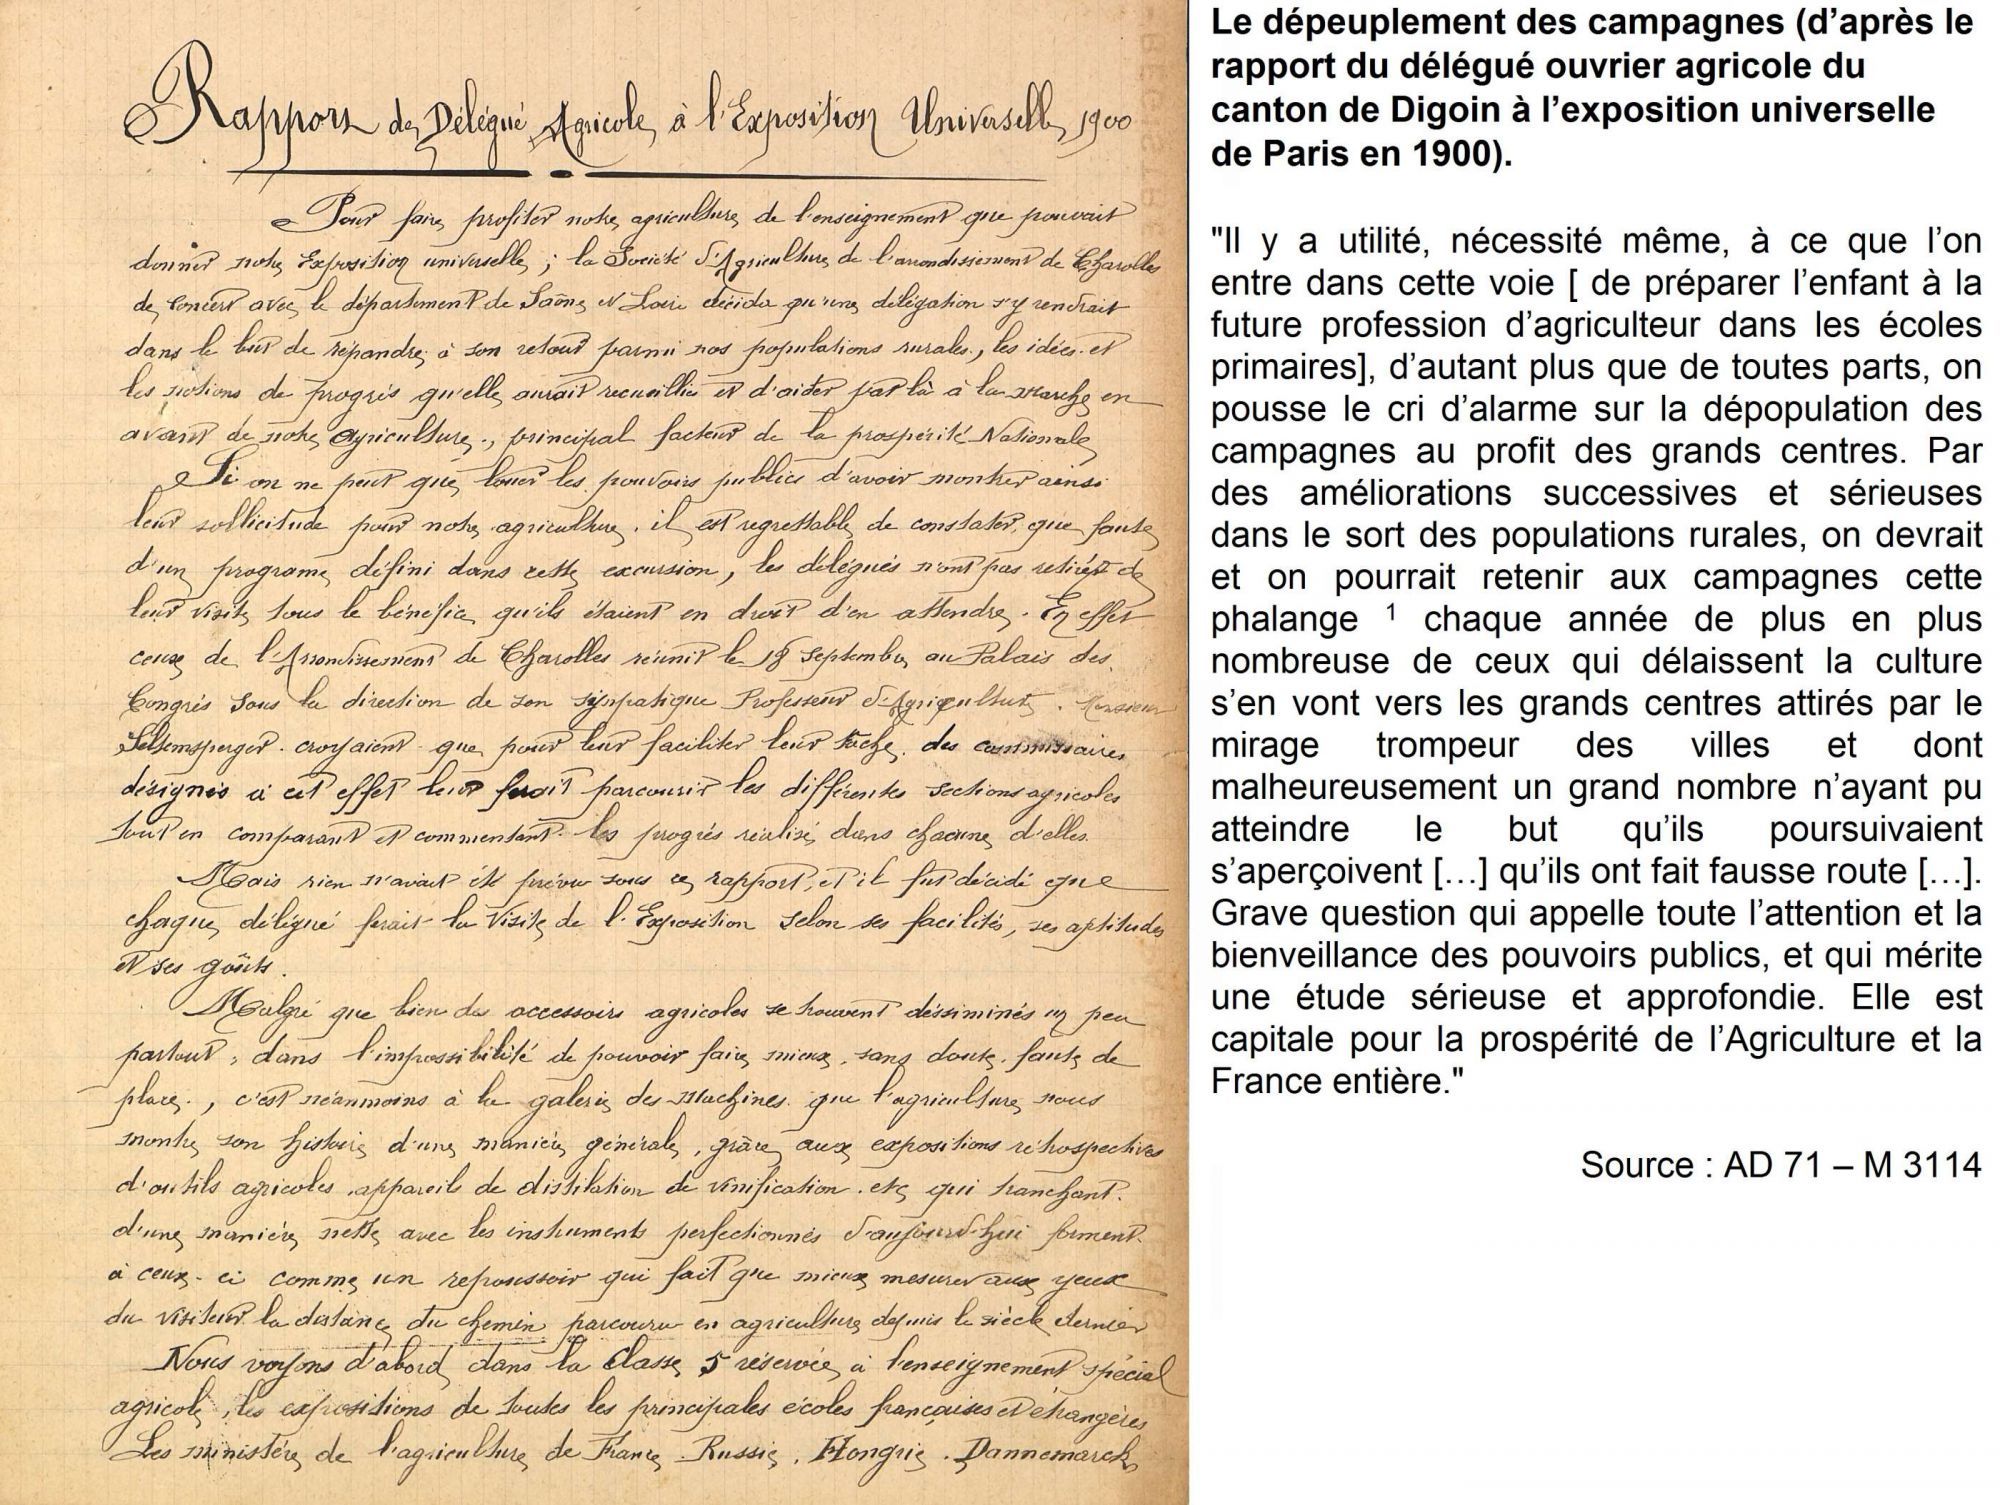 Rapport de Délégué Agricole à l'Exposition Universelle 1900
Pour faire profiter notre agriculture de l'enseignement que pouvait
donner notre Exposition universelle ; la Société d'Agriculture de l'arrondissement de Charolles
de concert avec le département de Saône et Loire décida qu'une délégation s'y rendrait
dans le but de répandre à son retour parmi nos populations rurales, les idées et
les notions de progrès qu'elle aurait recueillies et d'aider par là à la marche en
avant de notre agriculture, principal facteur de la prospérité Nationale
Si on ne peut que louer les pouvoirs publics d'avoir montrer ainsi
leur sollicitude pour notre agriculture, il est regrettable de constater, que faute
d'un programe défini dans cette excursion, les délégués n'ont pas retirés de
leur visite tous le bénéfice qu'ils étaient en droit d'en attendre. En effet
ceux de l'Arrondissement de Charolles réunit le 18 Septembre au Palais des
Congrès sous la direction de son sympatique Professeur d'Agriculture. Monsieur
croyaient que pour leur faciliter leur tâche, des commissaires
désignés à cet effet leur ferait parcourir les différentes sections agricoles
tout en comparant et commentant les progrès réalisé dans chacune d'elles.
Mais rien n'avait été prévu sous ce rapport, et il fut décidé que
chaque délégué ferait la visite de l'Exposition selon ses facilités, ses aptitudes
et ses goûts.
Malgré que bien des accessoirs agricoles se trouvent désséminés un peu
partout, dans l'impossibilité de pouvoir faire mieux, sans doute, faute de
place, c'est néanmoins à la galerie des Machines que l'agriculture nous
montre son histoire d'une manière générale, grâce aux expositions rétrospectives
d'outils agricoles, appareils de distilation de vinification, etc, qui tranchant
d'une manière nette avec les instruments perfectionnés d'aujourd'hui forment
à ceux-ci comme un repoussoir qui fait que mieux mesurer aux yeux
du visiteur la distance du chemin parcouru en agriculture depuis le siècle dernier
Nous voyons d'abord dans la Classe 5 réservée à l'enseignement spécial
agricole, les expositions de toutes les principales écoles françaises et étrangères
Les ministère de l'agriculture de France, Russie, Hongrie, Dannemarck
Le dépeuplement des campagnes (d'après le
rapport du délégué ouvrier agricole du
canton de Digoin à l'exposition universelle
de Paris en 1900).
"Il y a utilité, nécessité même, à ce que l'on
entre dans cette voie [ de préparer l'enfant à la
future profession d'agriculteur dans les écoles
primaires], d'autant plus que de toutes parts, on
pousse le cri d'alarme sur la dépopulation des
campagnes au profit des grands centres. Par
des améliorations successives et sérieuses
dans le sort des populations rurales, on devrait
et on pourrait retenir aux campagnes cette
phalange 1 chaque année de plus en plus
nombreuse de ceux qui délaissent la culture
s'en vont vers les grands centres attirés par le
mirage trompeur des villes et dont
malheureusement un grand nombre n'ayant pu
atteindre le but qu'ils poursuivaient
s'aperçoivent […] qu'ils ont fait fausse route […].
Grave question qui appelle toute l'attention et la
bienveillance des pouvoirs publics, et qui mérite
une étude sérieuse et approfondie. Elle est
capitale pour la prospérité de l'Agriculture et la
France entière."
Source : AD 71 – M 3114